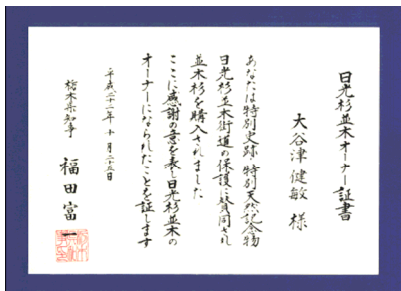 日光杉並木オーナー証書
大谷津健敏 様
あなたは特別史跡 特別天然記念物
日光杉並木街道の保護に賛同され
並木杉を購入されました
ここに感謝の意を表し日光杉並木の
オーナーになられたことを証します
平成二十二年十月二十五日
栃木県知事 福田富一